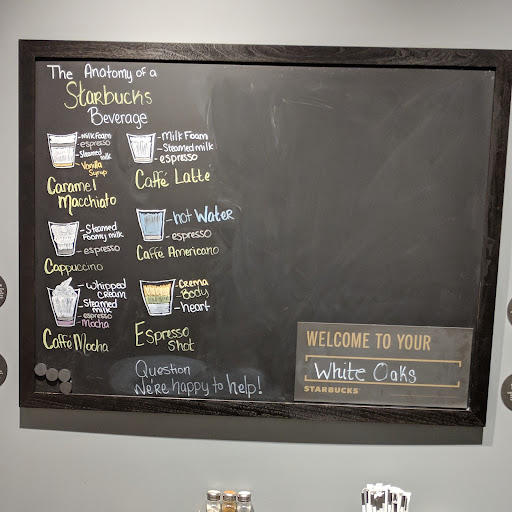 The Anatomy of a
Starbucks
Beverage
Milk Foam
espresso
Steamed
milk
Vanilla
Syrup
Caramel
Macchiato
Milk Foam
Steamed milk
espresso
Caffé Latté
Steamed
Foamy milk
espresso
Cappuccino
hot Water
espresso
Caffé Americano
whipped
cream
Steamed
milk
espresso
Mocha
Caffé Mocha
Crema
Body
heart
Espresso
Shot
Question
We're happy to help!
WELCOME TO YOUR
White Oaks
STARBUCKS